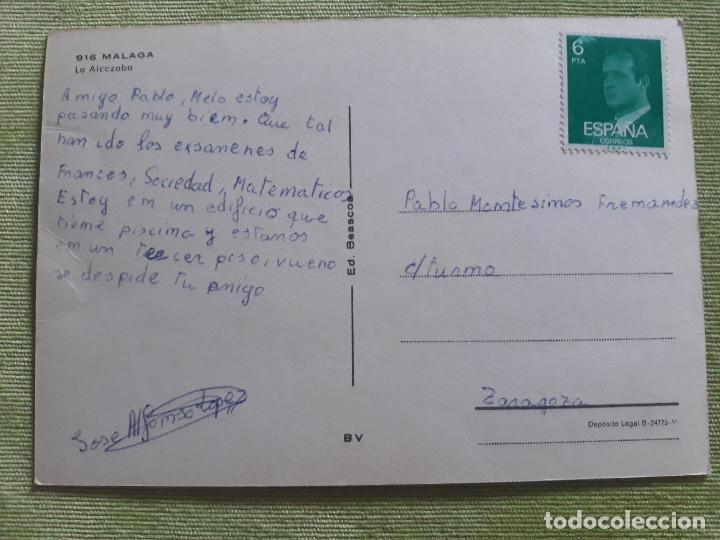 916 MALAGA
La Alcazaba
Amigo Pablo, Melo estoy
pasando muy biem. Que tal
han ido los exsanenes de
Frances, Sociedad, Matematicos
Estoy em um edificio que
tieme piscima y estanos
em un tercer piso, vueno
se despide tu amigo
Jose Alfomso Lopez
Ed. Beascoa
BV
6
PTA
ESPAÑA
CORREOS
Pablo Momtesimos Fremamdes
c/turmo
Zaragoza
Depósito Legal B-24775-V
todocoleccion.net